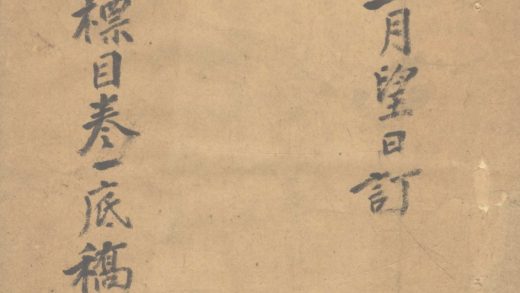 月望日訂
標目卷一底稿